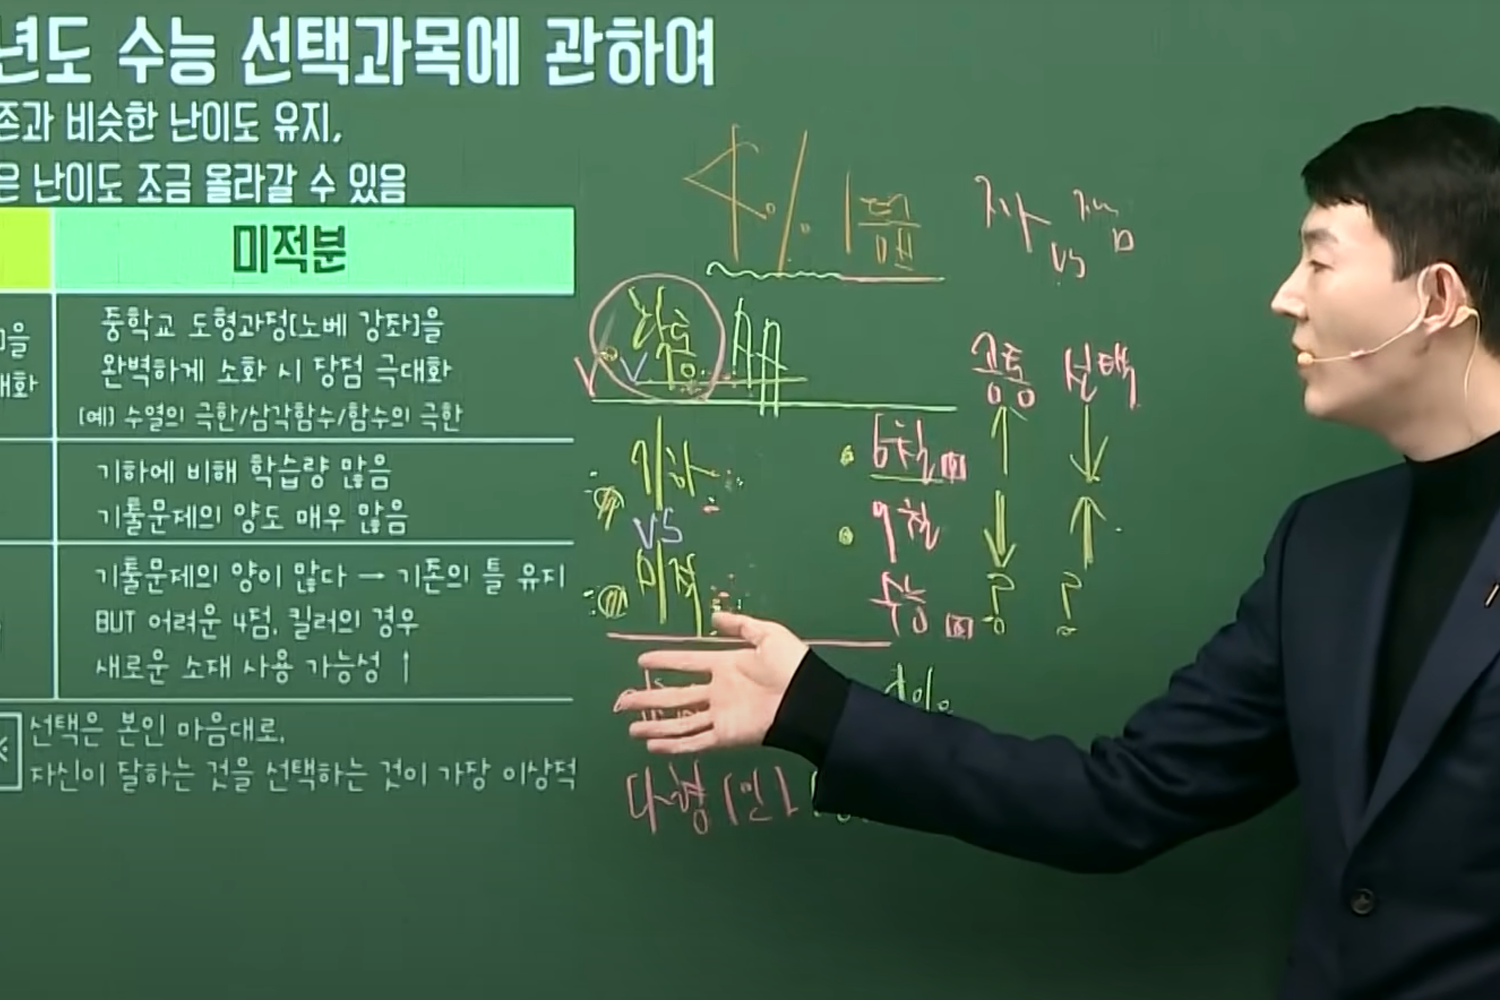 년도 수능 선택과목에 관하여
존과 비슷한 난이도 유지,
은 난이도 조금 올라갈 수 있음
미적분
]을
대화
중학교 도형과정[노베 강좌]을
완벽하게 소화 시 장점 극대화
(예) 수열의 극한/삼각함수/함수의 극한
기하에 비해 학습량 많음
기출문제의 양도 매우 많음
기출문제의 양이 많다 → 기존의 틀 유지
BUT 어려운 4점, 킬러의 경우
새로운 소재 사용 가능성 ↑
※ 선택은 본인 마음대로,
자신이 잘하는 것을 선택하는 것이 가장 이상적
4% 1등급
vs
확통
기하
vs
미적
공통 선택
6평 ↑ ↓
9평 ↓ ↑
수능 ? ?